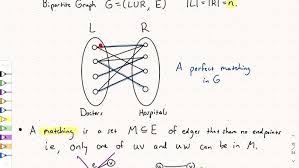 Bipartite Graph G=(LUR, E) |L|=|R|=n.
L R
A perfect matching
in G
Doctors Hospitals
• A matching is a set M ⊆ E of edges that share no endpoints
i.e., only one of uv and uw can be in M.